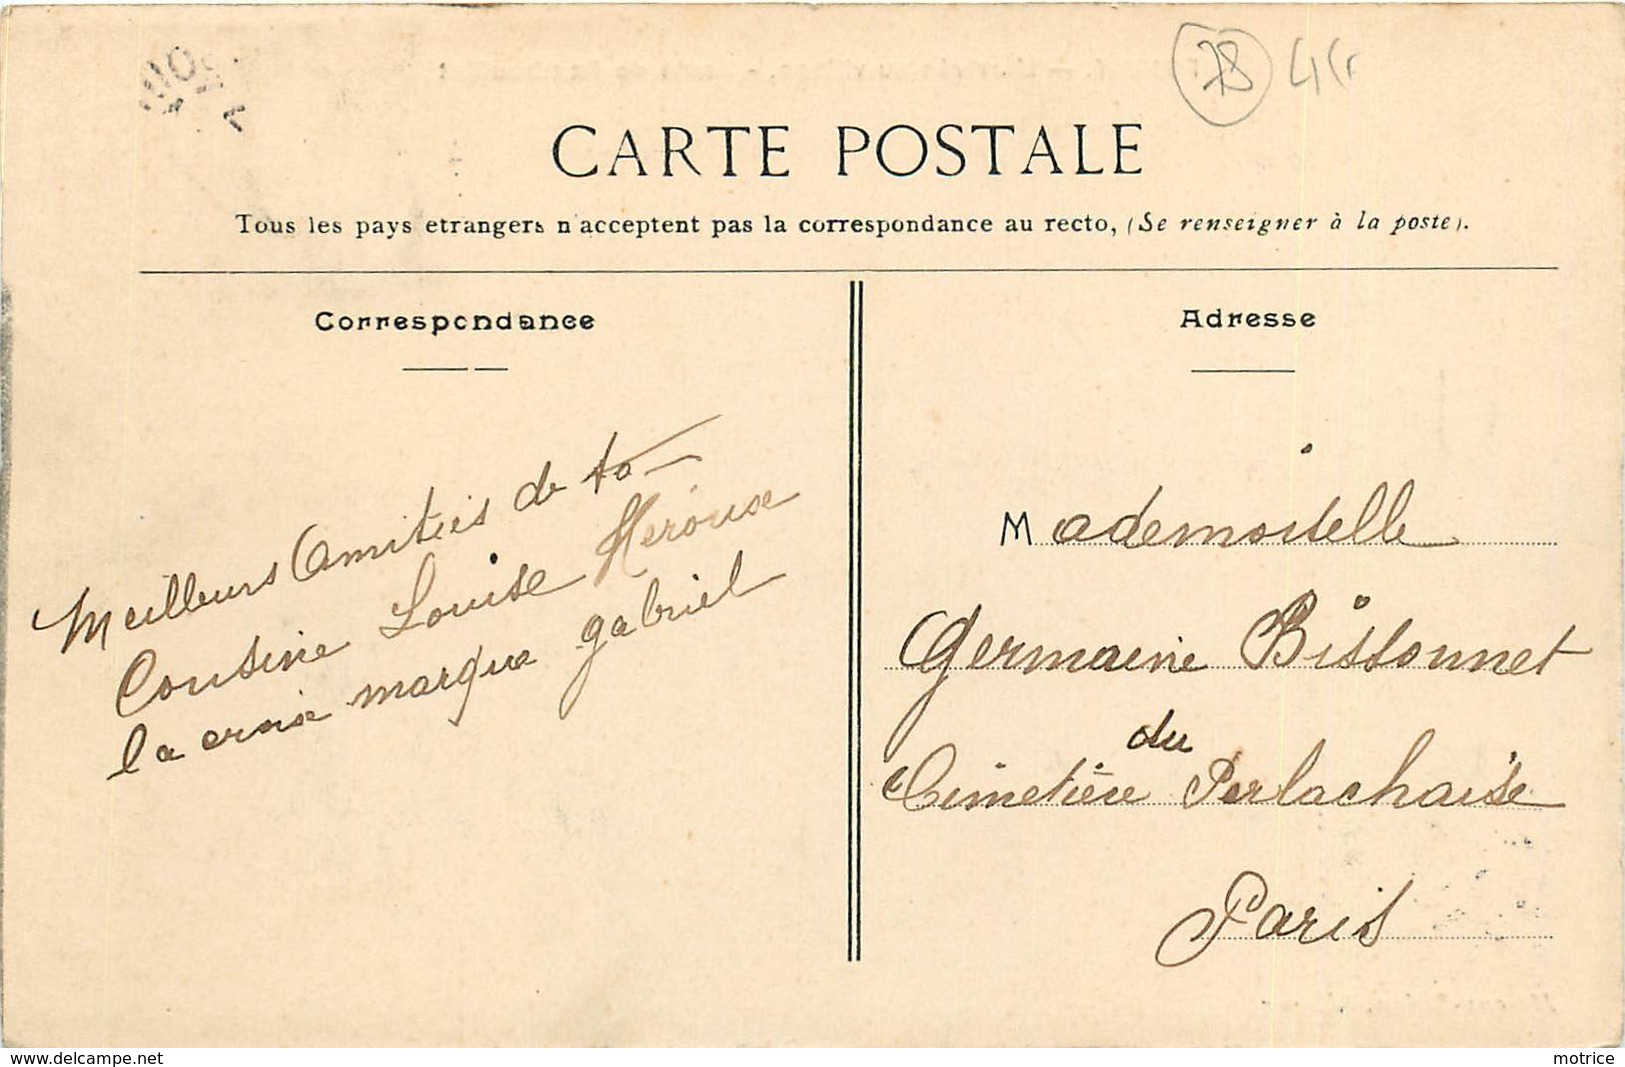 78 4Fr
CARTE POSTALE
Tous les pays etrangers n'acceptent pas la correspondance au recto, (Se renseigner à la poste).
Correspondance
Meilleurs Amitiés de ta
Cousine Louise Meroux
la croix marque gabriel
Adresse
Mademoiselle
Germaine Bissonnet
Cimetière du Perlachaise
Paris
www.delcampe.net
motrice